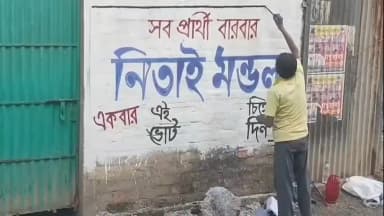 সব প্রার্থী বারবার
নিতাই মন্ডল
একবার এই
ভোট দিন